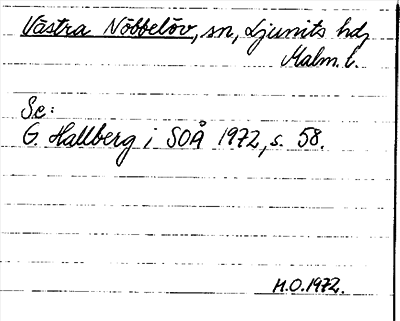 Västra Nöbbelöv, sn, Ljunits hd,
Malm. l.
Se:
G. Hallberg i SOÅ 1972, s. 58.
M.O. 1972.